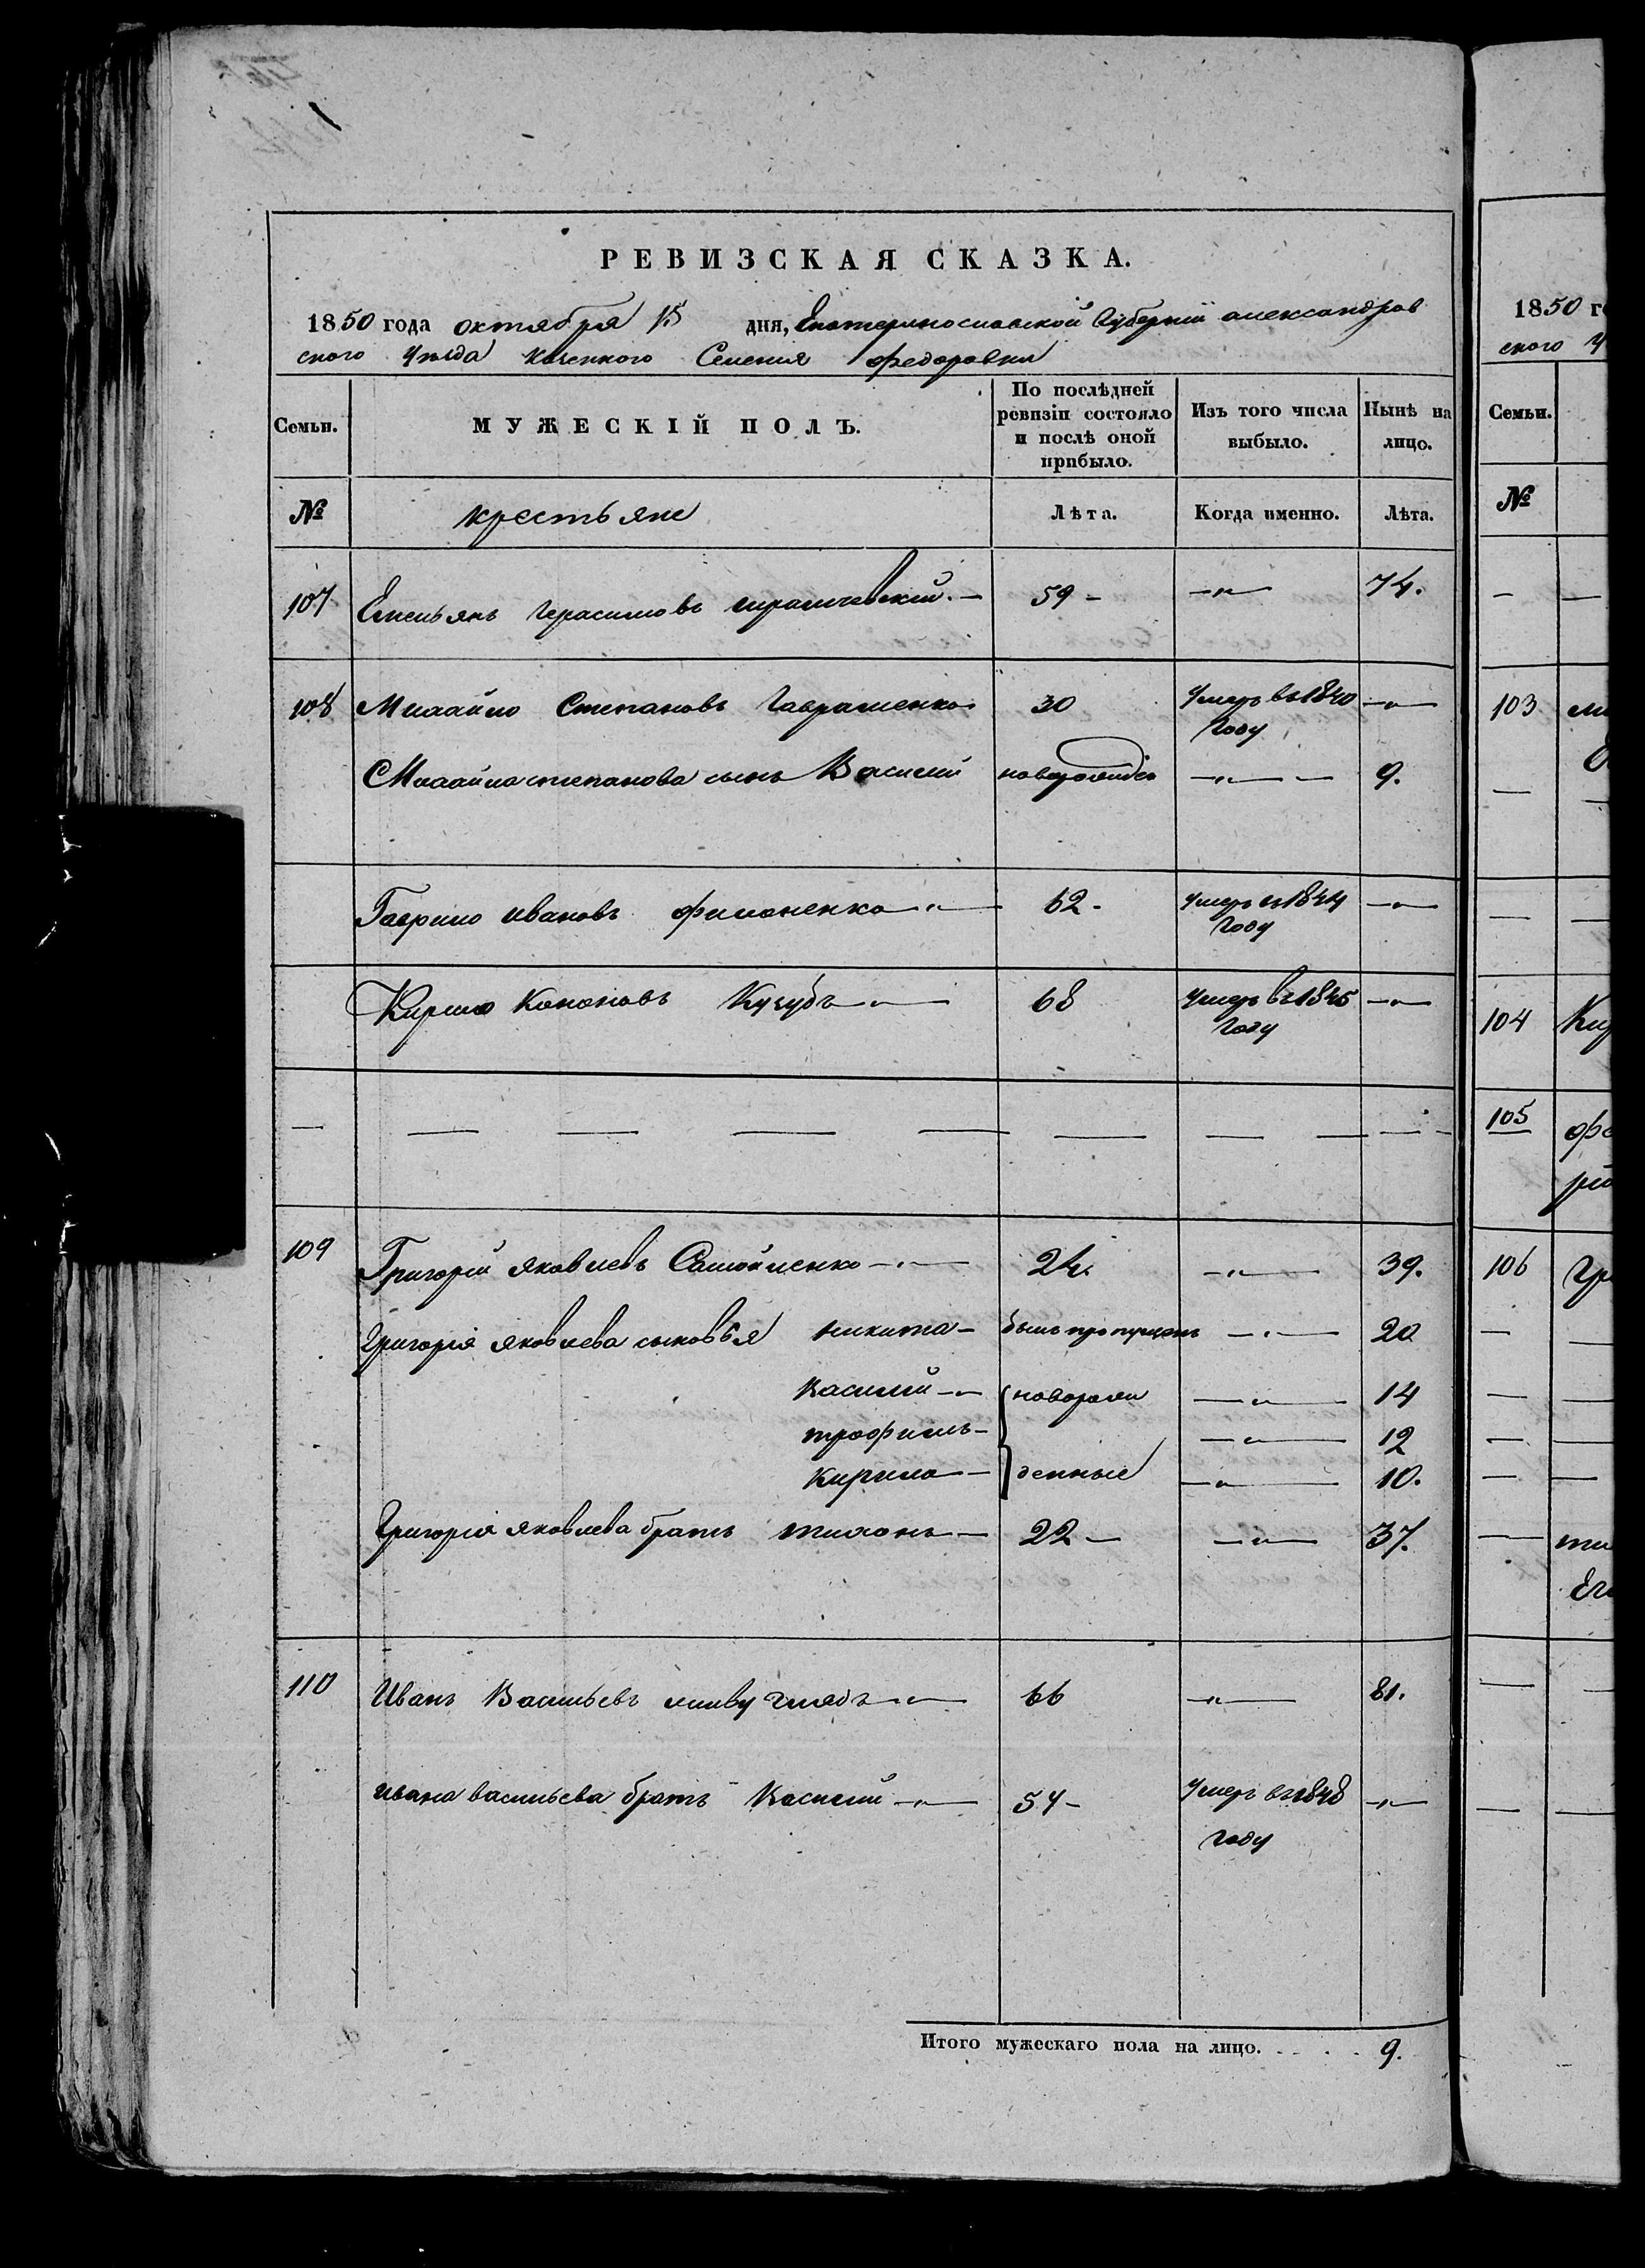 РЕВИЗСКАЯ СКАЗКА.
1850 года октября 15 дня, Екатеринославской Губерніи александров
ского уезда казенного Селения федоровки
Семьи. МУЖЕСКІЙ ПОЛЪ. По послѣдней ревизіи состояло и послѣ оной прибыло. Изъ того числа выбыло. Нынѣ на лицо.
№ крестьяне Лѣта. Когда именно. Лѣта.
107 Емельянъ Герасимовъ 59 - -„- 74.
108 Михайло Степановъ Гаврашенко 30 умеръ въ 1840 году -„-
Михайла степанова сынъ Василий новорожден -„- 9.
Гаврило ивановъ филоненко -„- 62 - умеръ въ 1844 году -„-
Кирило Кононовъ Кучубъ -„- 68 умеръ въ 1845 году -„-
— — — — — — — — —
109 Григорій яковлевъ Самойленко -„- 24. -„- 39.
Григорія яковлева сыновья никита - былъ пропущенъ -„- 20
Василий -„- новорож -„- 14
трофимъ - -„- 12
Кирило - денные -„- 10.
Григорія яковлева братъ тихонъ - 22 - -„- 37.
110 Иванъ Васильевъ -„- 66 -„- 81.
ивана васильева братъ Василий -„- 54 - умеръ въ 1848 году -„-
Итого мужескаго пола на лицо. . . . . 9.
1850 го
ского у
Семьи.
№
103
104 Ки
105 фе
106 Гр
ти